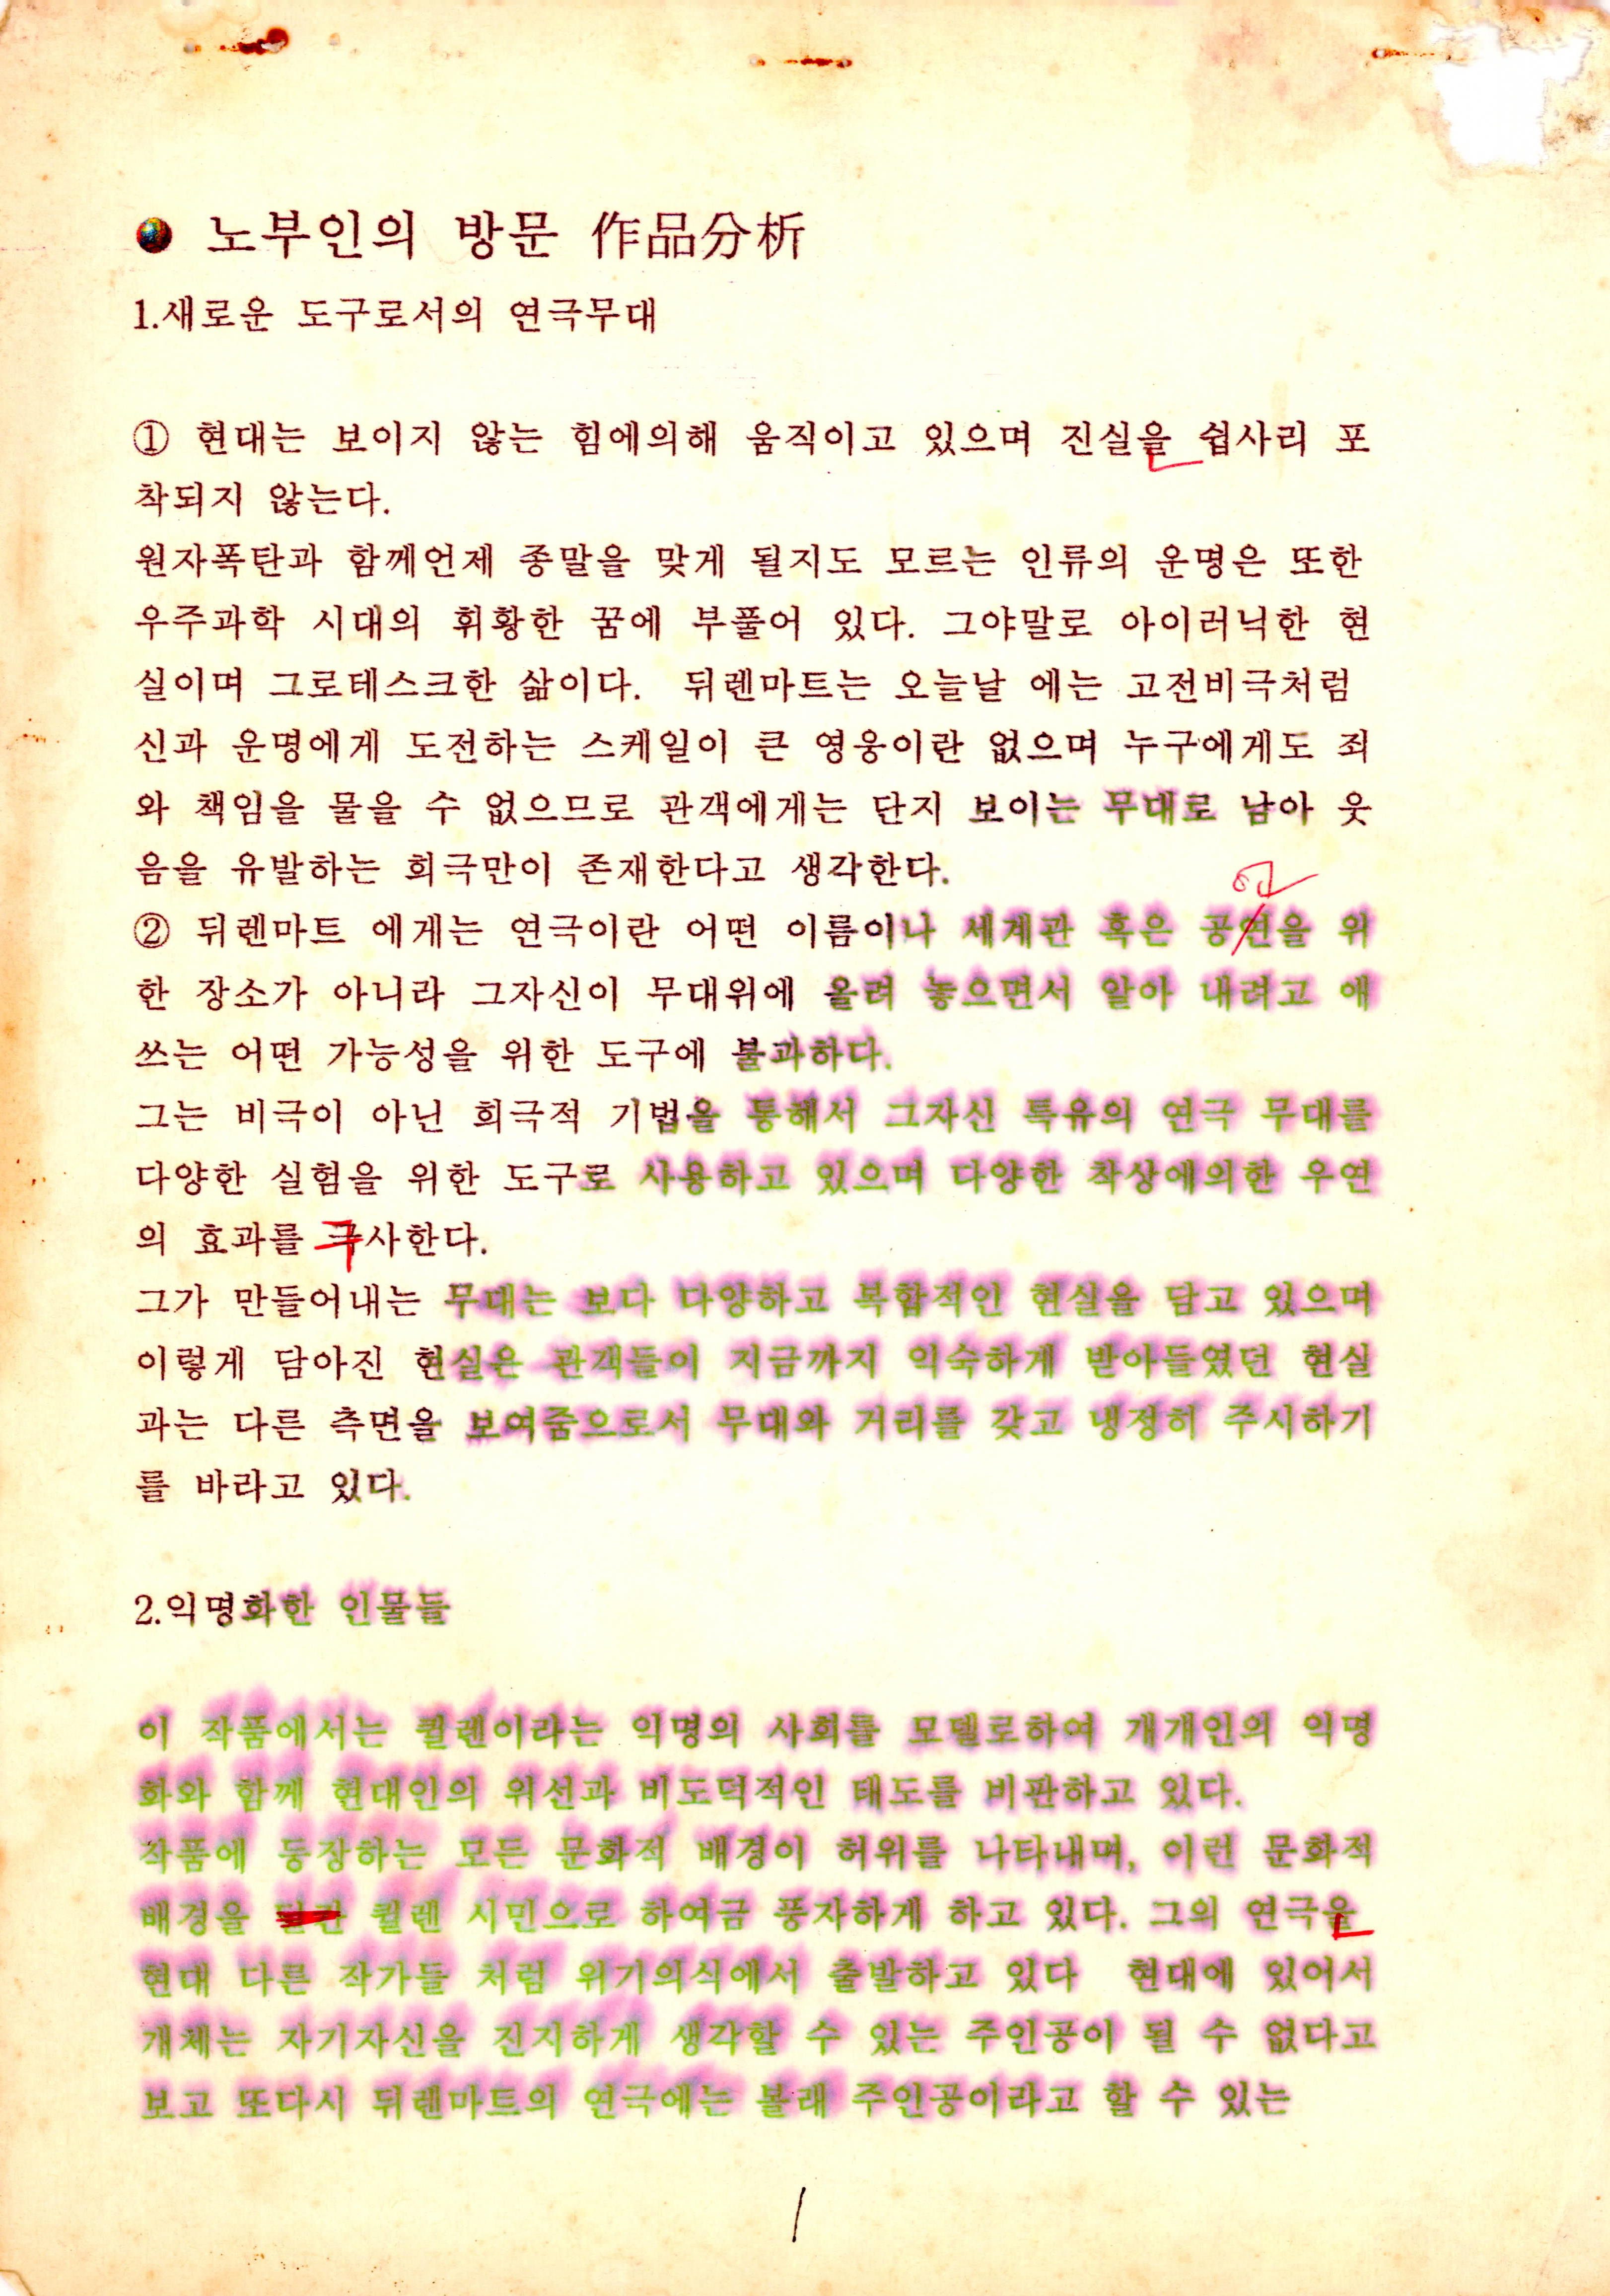 노부인의 방문 作品分析
1.새로운 도구로서의 연극무대
① 현대는 보이지 않는 힘에의해 움직이고 있으며 진실을 쉽사리 포
착되지 않는다.
원자폭탄과 함께언제 종말을 맞게 될지도 모르는 인류의 운명은 또한
우주과학 시대의 휘황한 꿈에 부풀어 있다. 그야말로 아이러닉한 현
실이며 그로테스크한 삶이다. 뒤렌마트는 오늘날 에는 고전비극처럼
신과 운명에게 도전하는 스케일이 큰 영웅이란 없으며 누구에게도 죄
와 책임을 물을 수 없으므로 관객에게는 단지 보이는 무대로 남아 웃
음을 유발하는 희극만이 존재한다고 생각한다.
② 뒤렌마트 에게는 연극이란 어떤 이름이나 세계관 혹은 공연을 위
한 장소가 아니라 그자신이 무대위에 올려 놓으면서 알아 내려고 애
쓰는 어떤 가능성을 위한 도구에 불과하다.
그는 비극이 아닌 희극적 기법을 통해서 그자신 특유의 연극 무대를
다양한 실험을 위한 도구로 사용하고 있으며 다양한 착상에의한 우연
의 효과를 구사한다.
그가 만들어내는 무대는 보다 다양하고 복합적인 현실을 담고 있으며
이렇게 담아진 현실은 관객들이 지금까지 익숙하게 받아들였던 현실
과는 다른 측면을 보여줌으로서 무대와 거리를 갖고 냉정히 주시하기
를 바라고 있다.
2.익명화한 인물들
이 작품에서는 퀼렌이라는 익명의 사회를 모델로하여 개개인의 익명
화와 함께 현대인의 위선과 비도덕적인 태도를 비판하고 있다.
작품에 등장하는 모든 문화적 배경이 허위를 나타내며, 이런 문화적
배경을 퀼렌 시민으로 하여금 풍자하게 하고 있다. 그의 연극을
현대 다른 작가들 처럼 위기의식에서 출발하고 있다 현대에 있어서
개체는 자기자신을 진지하게 생각할 수 있는 주인공이 될 수 없다고
보고 또다시 뒤렌마트의 연극에는 본래 주인공이라고 할 수 있는
1